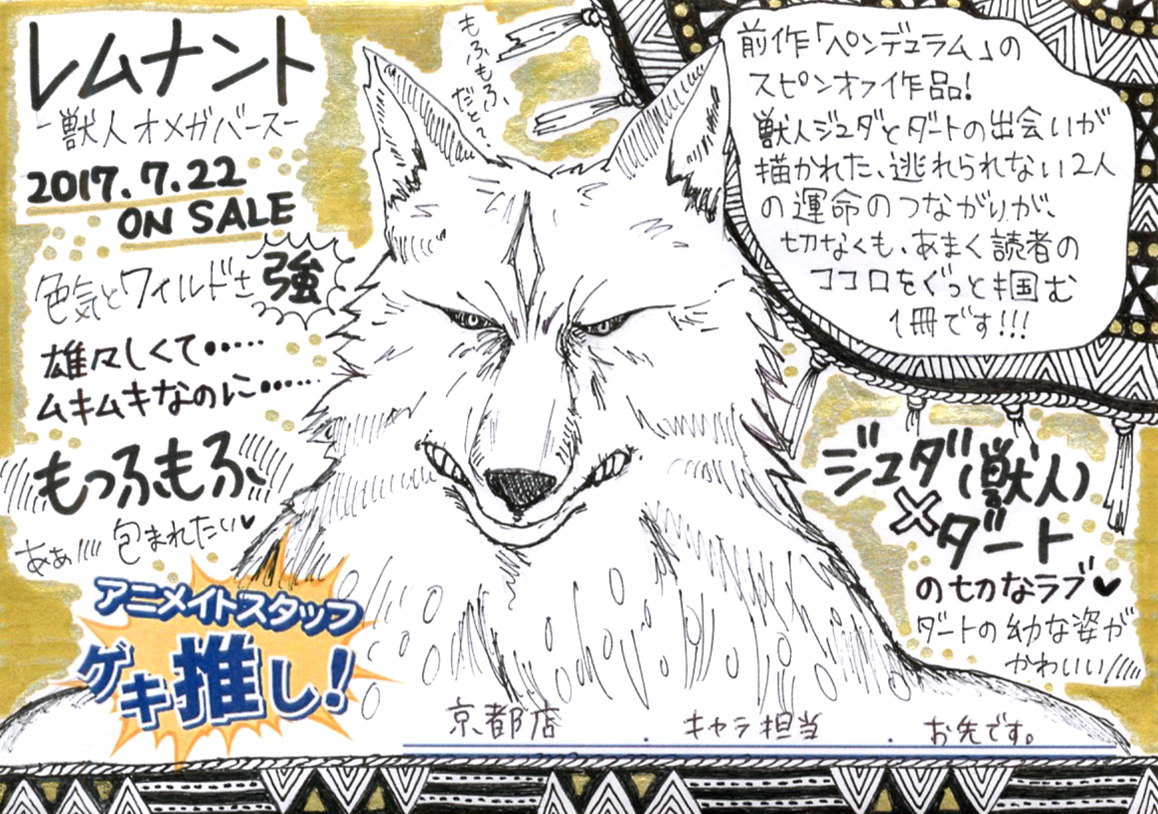 レムナント
-獣人オメガバース-
2017.7.22
ON SALE
色気とワイルドさ強
雄々しくて・・・・・
ムキムキなのに・・・・・
もっふもふ
あぁ 包まれたい♥
アニメイトスタッフ
ゲキ推し!
もふもふ
だと〜
前作「ペンデュラム」の
スピンオフ作品!
獣人ジュダとダートの出会いが
描かれた、逃れられない2人
の運命のつながりが、
切なくも、あまく読者の
ココロをぐっと掴む
1冊です!!!
ジュダ(獣人)
×ダート
の切なラブ♥
ダートの幼な姿が
かわいい
京都店 . キャラ担当 . お先です。